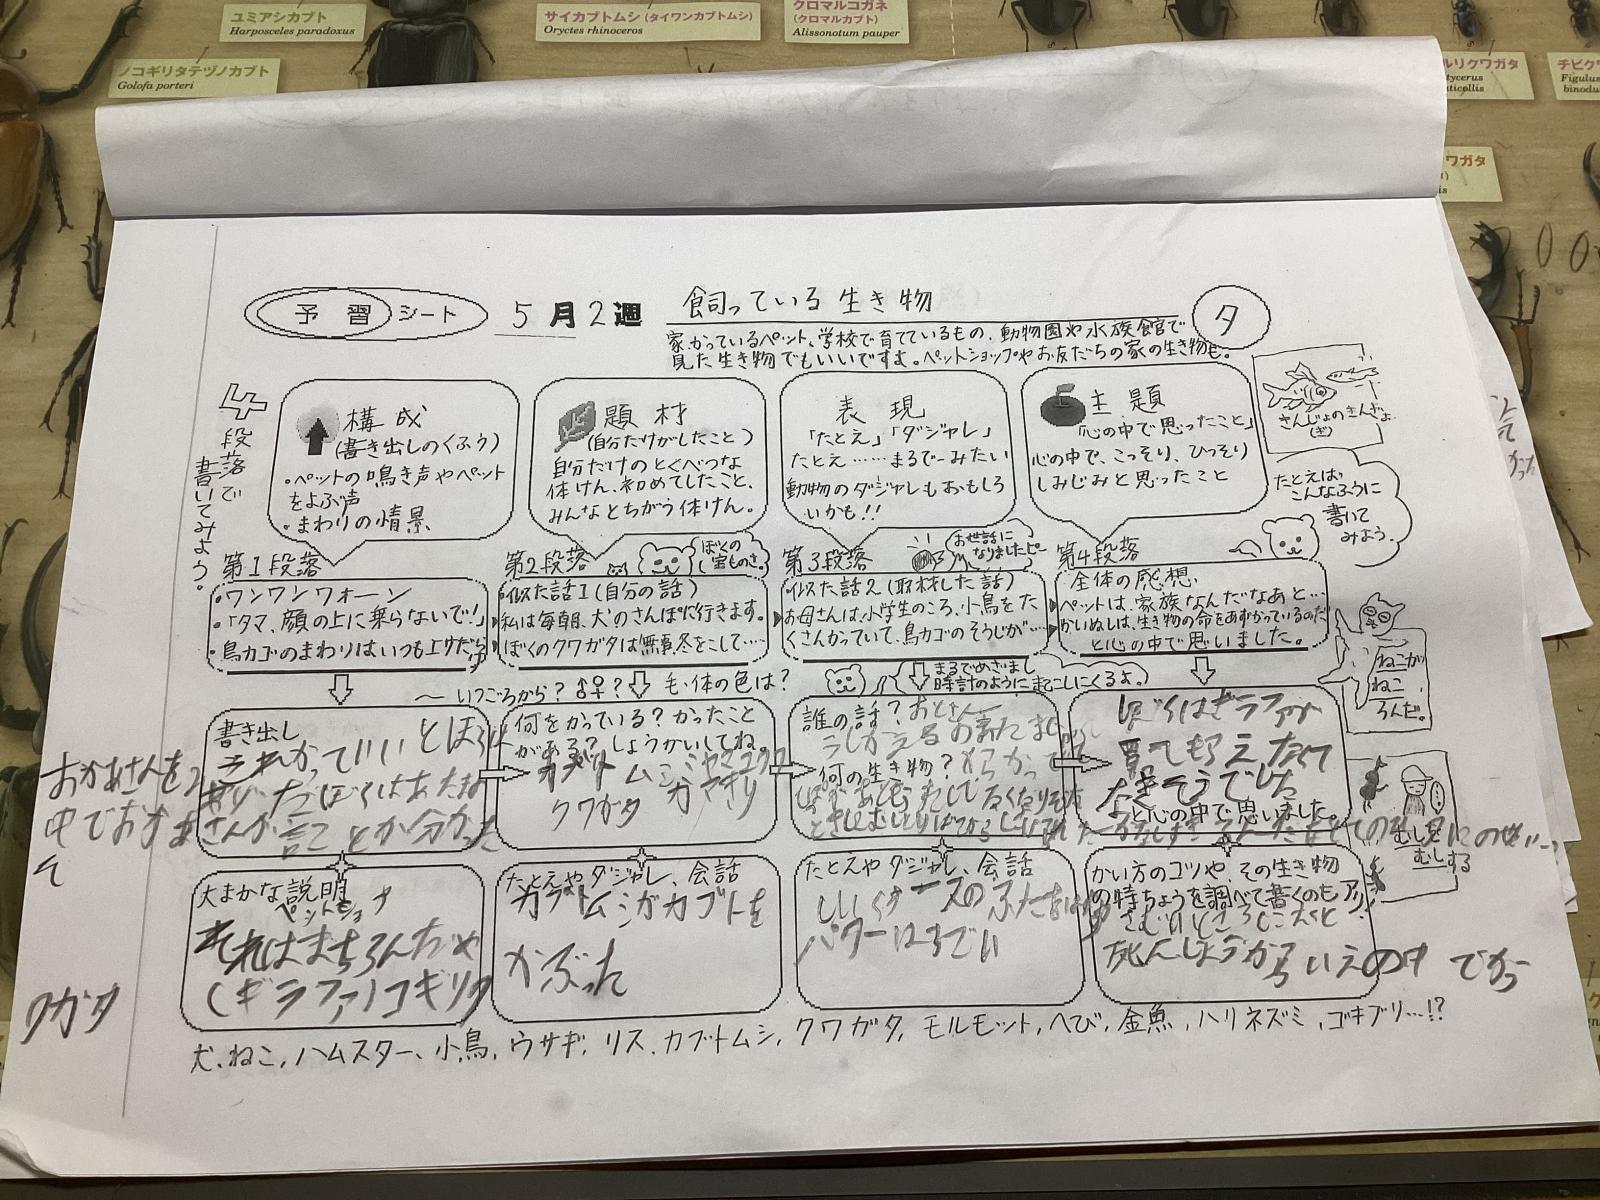 ユミアシカブト
Harposceles paradoxus
サイカブトムシ(タイワンカブトムシ)
Oryctes rhinoceros
クロマルコガネ
(クロマルカブト)
Alissonotum pauper
ノコギリタテヅノカブト
Golofa porteri
ルリクワガタ
チビクワ
Figulus
binodu
ワガタ
予習シート
5月2週
飼っている生き物
タ
家かっているペット、学校で育てているもの、動物園や水族館で
見た生き物でもいいですよ。ペットショップやお友だちの家の生き物も。
4段落で
書いてみよう。
構成
(書き出しのくふう)
・ペットの鳴き声やペット
をよぶ声
・まわりの情景
題材
(自分だけがしたこと)
自分だけのとくべつな
体けん、初めてしたこと、
みんなとちがう体けん。
表現
「たとえ」「ダジャレ」
たとえ……まるで〜みたい
動物のダジャレもおもしろ
いかも!!
主題
「心の中で思ったこと」
心の中で、こっそり、ひっそり
しみじみと思ったこと
さんじょのきんぎょ
(ぎ)
たとえば、
こんなふうに
書いて
みよう。
第1段落
・ワンワンウォーン
・「タマ、顔の上に乗らないで!」
・鳥カゴのまわりはいつも上りだ
第2段落
ぼくの
宝ものさ。
・似た話1(自分の話)
私は毎朝、犬のさんぽに行きます。
ぼくのクワガタは無事冬をこして……
第3段落
お世話に
なりましたピー
・似た話2(取材した話)
お母さんは、小学生のころ、小鳥をた
くさんかっていて、鳥カゴのそうじが……
第4段落
全体の感想、
ペットは、家族なんだなあと…
かいぬしは、生き物の命をあずかっているのだ
と心の中で思いました。
〜いつごろから?♂♀?毛・体の色は?
まるでめざまし
時計のように起こしにくるよ。
ねこが
ねこ
ろんだ。
書き出し
おかあさんを
中でおかあさんが言て とか分かった
何をかっている?かったこと
がある?しょうかいしてね。
クワガタ
誰の話?
何の生き物?
ぼくはギラファが
買てもらえたくて
なきそうでした
と心の中で思いました。
大まかな説明
それはまちろんだや
(ギラファ)コギリク
ワガタ
たとえやダジャレ、会話
カブトムシがカブトを
かぶった
たとえやダジャレ、会話
かい方のコツや、その生き物
の特ちょうを調べて書くのもアリ!
さむいところにおくと
死んじょうから いえの中 でかう
犬、ねこ、ハムスター、小鳥、ウサギ、リス、カブトムシ、クワガタ、モルモット、へび、金魚、ハリネズミ、ゴキブリ…!?